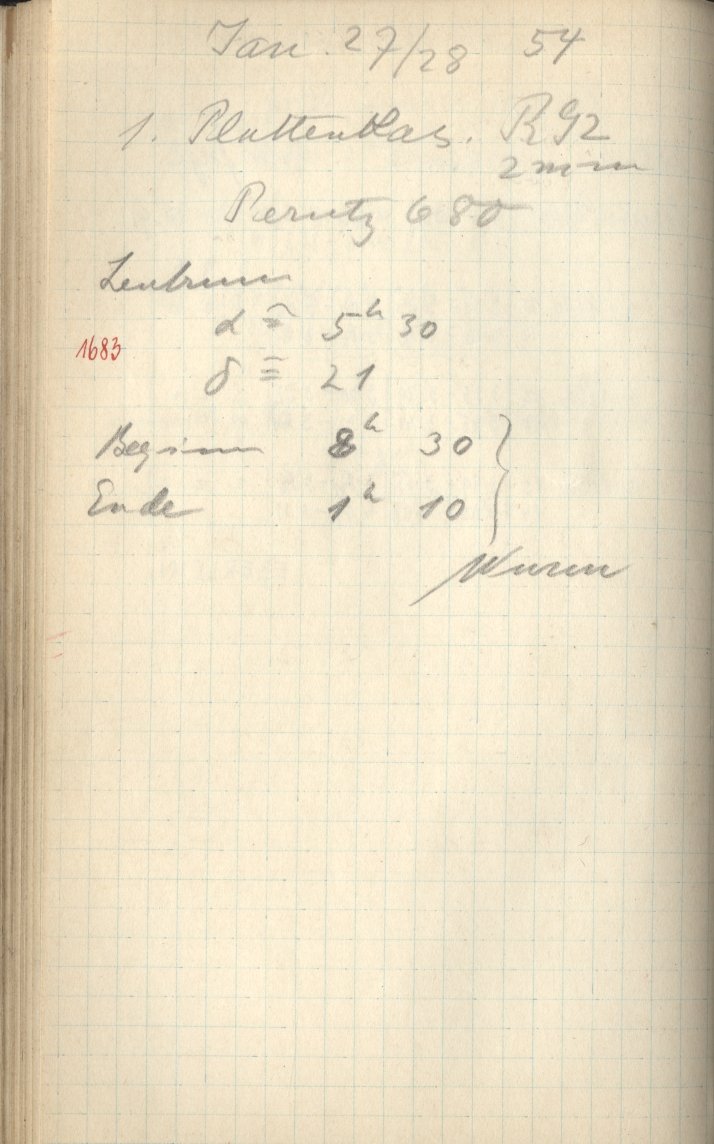 Jan. 27/28 54
1. Plattenkas. RG2
2 mm
Perutz 680
Zentrum
α = 5h 30
1683
δ = 21
Beginn 8h 30
Ende 1h 10
Wurm